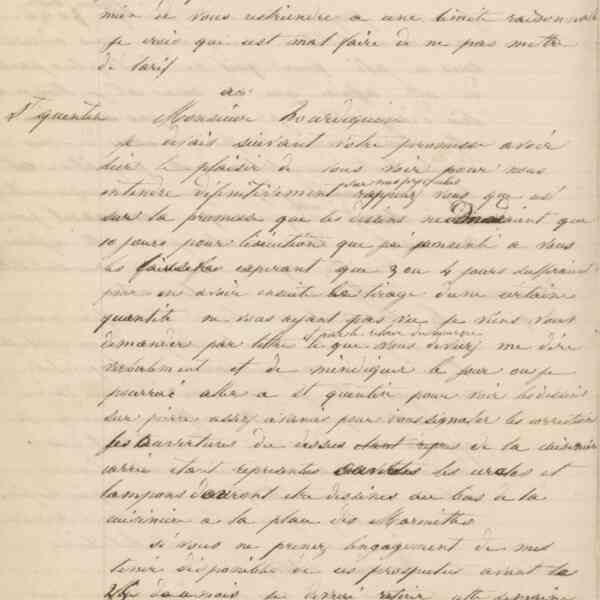 mien de vous restriendre a une limite raisonnable
je crois que cest mal faire de ne pas mettre
de tarif
St quentin Monsieur Bourdequin
je devais suivant votre promesse avoir
hier le plaisir de vous voir pour nous
entendre définitivement sur nos prospectus vous que
sur la promesse que les dessins ne demandraient que
10 jours pour l'exécution que j'ai consenti a vous
les laisser esperant que 3 ou 4 jours sufiraient
pour en avoir ensuite le tirage d'une certaine
quantité ne vous ayant pas vu je viens vous
demander par lettre par le retour du courrier ce que vous devez me dire
verbalement et de m'indiquer le jour ou je
pourrai aller a st quentin pour voir les dessins
sur pierre assez avancés pour vous signaler les corrections
les ouvertures du dessus de la cuisinière
carrée etant representés ouvertes les cercles et
tampons devront etre dessinés au bas de la
cuisinière a la place des Marmittes
si vous ne prenez l'engagement de me
tenir disponible de ces prospectus avant le
24 du mois je devrai retirer cette semaine